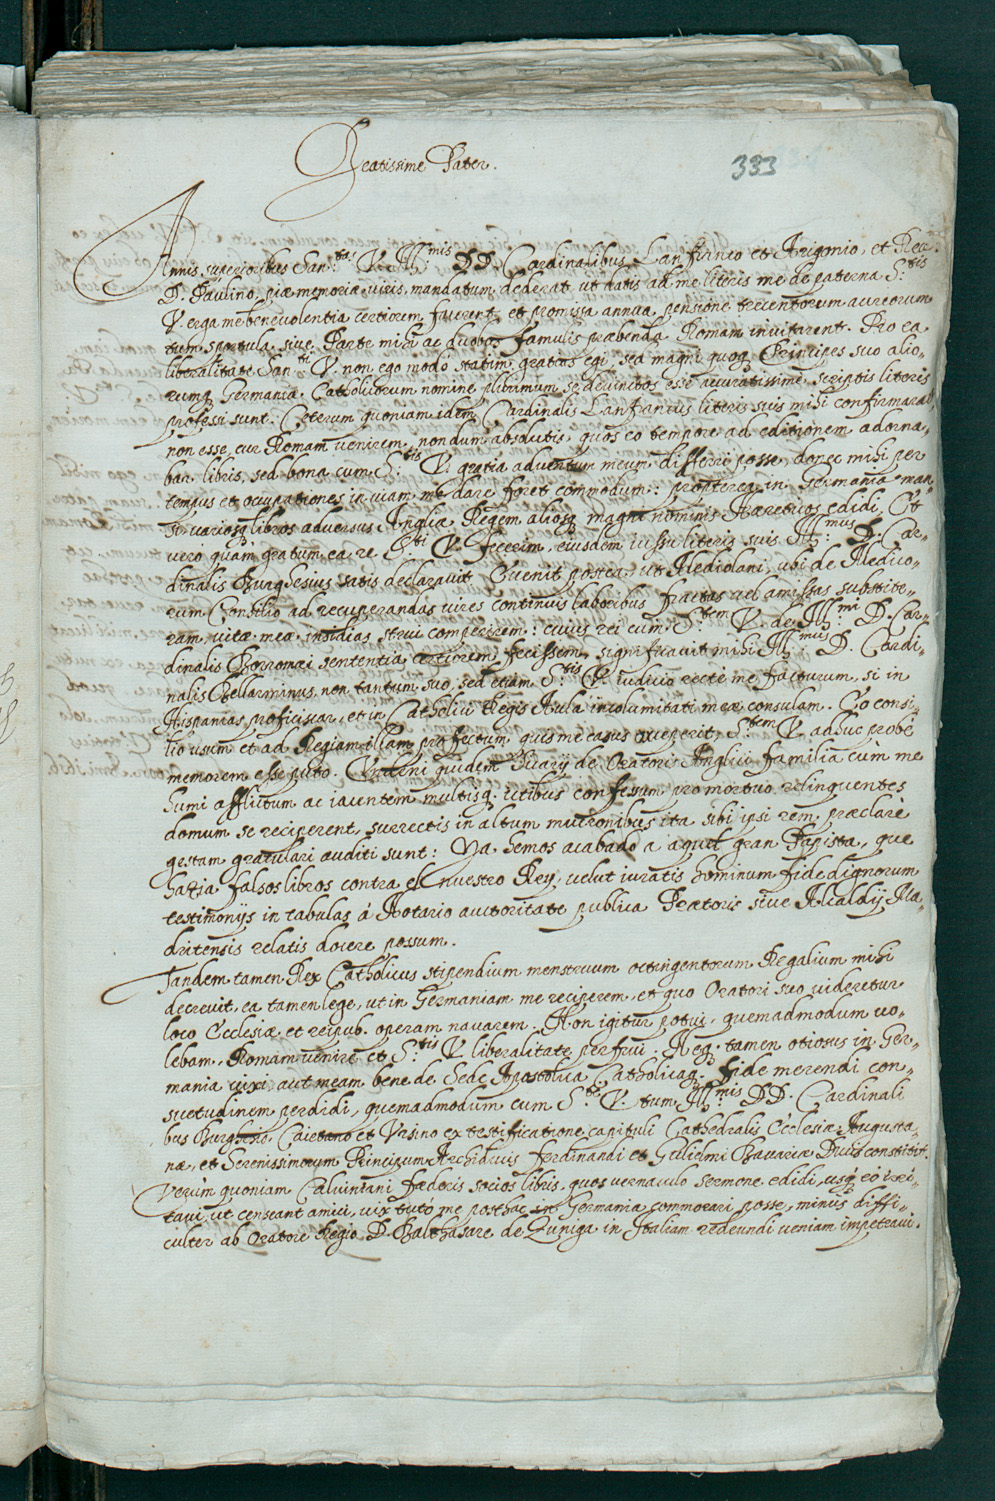 Beatissime Pater.
333
Annis superioribus San.tas V. Ill.mis DD. Cardinalibus Lanfranco et Arigonio, et Rev.
D. Paulino, piæ memoriæ viris, mandatum dederat ut datis ad me literis me de paterna S.tis
V. erga me benevolentia certiorem facerent, et promissa annua pensione trecentorum aureorum
tum sportula sive Parte mihi ac duobs. famulis præbenda Romam invitarent. Pro ea
liberalitate San.ti V. non ego modo statim gratias egi, sed magni quoq. Principes suo alio-
rumq. Germaniæ Catholicorum nomine plurimum se devinctos esse accuratissime scriptis literis
professi sunt. Ceterum quoniam idem Cardinalis Lanfrancus literis suis mihi confirmarat
non esse cur Romam venirem, nondum absolutis, quos eo tempore ad editionem adorna-
bam libris, sed bona cum S.tis V. gratia adventum meum differri posse, donec mihi per
tempus et occupationes in viam me dare foret commodum: propterea in Germania man-
si variosq. libros adversus Angliæ Regem aliosq. magni nominis Hæreticos edidi. Et
vero quam gratum ea re S.ti V. fecerim, eiusdem iussu literis suis Ill.mus D. Car-
dinalis Burghesius satis declaravit. Evenit postea, ut Mediolani, ubi de Medico-
rum Consilio ad recuperandas vires continuis laboribus fractas vel amissas substite-
ram, vitæ meæ insidias strui comperirem: cuius rei cum S.tem V. de Ill.mi D. Car-
dinalis Borromæi sententia certiorem fecissem, significavit mihi Ill.mus D. Cardi-
nalis Bellarminus non tantum suo, sed etiam S.tis V. iudicio recte me facturum, si in
Hispanias proficiscar, et in Catholici Regis Aula incolumitati meæ consulam. Eo consi-
lio usum et ad Regiam illam profectum quis me casus exceperit, S.tem V. adhuc probe
memorem esse puto. Undeni quidem Sicarij de Oratoris Anglici familia cum me
humi afflictum ac iacentem multisq. ictibus confossum pro mortuo relinquentes
domum se reciperent, surrectis in altum mucronibus ita sibi ipsi rem præclare
gestam gratulari auditi sunt: Ya hemos acabado a aquel gran Papista, que
hazia falsos libros contra el nuestro Rey, velut iuratis hominum fide dignorum
testimonijs in tabulas á Notario auctoritate publica Prætoris sive Alcaldij Ma-
dritensis relatis docere possum.
Tandem tamen Rex Catholicus stipendium menstruum octingentorum Regalium mihi
decrevit, ea tamen lege, ut in Germaniam me reciperem, et quo Oratori suo videretur
loco Ecclesiæ et reipub. operam navarem. Non igitur potui, quemadmodum vo-
lebam, Romam venire et S.tis V. liberalitate perfrui. Neq. tamen otiosus in Ger-
mania vixi, aut meam bene de Sede Apostolica Catholicaq. fide merendi con-
suetudinem perdidi, quemadmodum cum S.ti V. tum Ill.mis DD. Cardinali
bus Burghesio, Caietano et Ursino ex testificatione capituli Cathedralis Ecclesiæ Augusta-
næ, et Serenissimorum Principum Archiducis Ferdinandi et Gulielmi Bavariæ Ducis constitit.
Verum quoniam Calviniani fœderis socios libris, quos vernaculo sermone edidi, usq. eo irri-
tavi, ut censeant amici, vix tuto me posthac in Germania commorari posse, minus diffi-
culter ab Oratore Regio D. Balthasare de Zuniga in Italiam redeundi veniam impetravi.